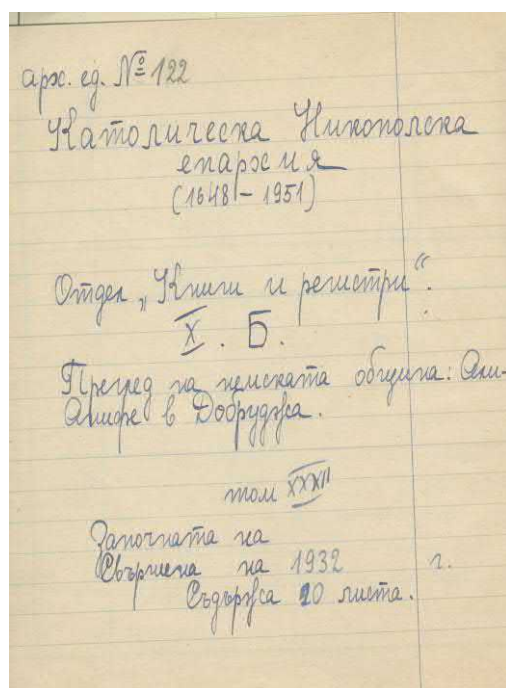 арх. ед. № 122
Католическа Никополска
епархия
(1648 – 1951)
Отдел „Книги и регистри“.
X. Б.
Преглед на немската община: Али-
Анифе в Добруджа.
том XXXII
Започната на
Свършена на 1932 г.
Съдържа 20 листа.